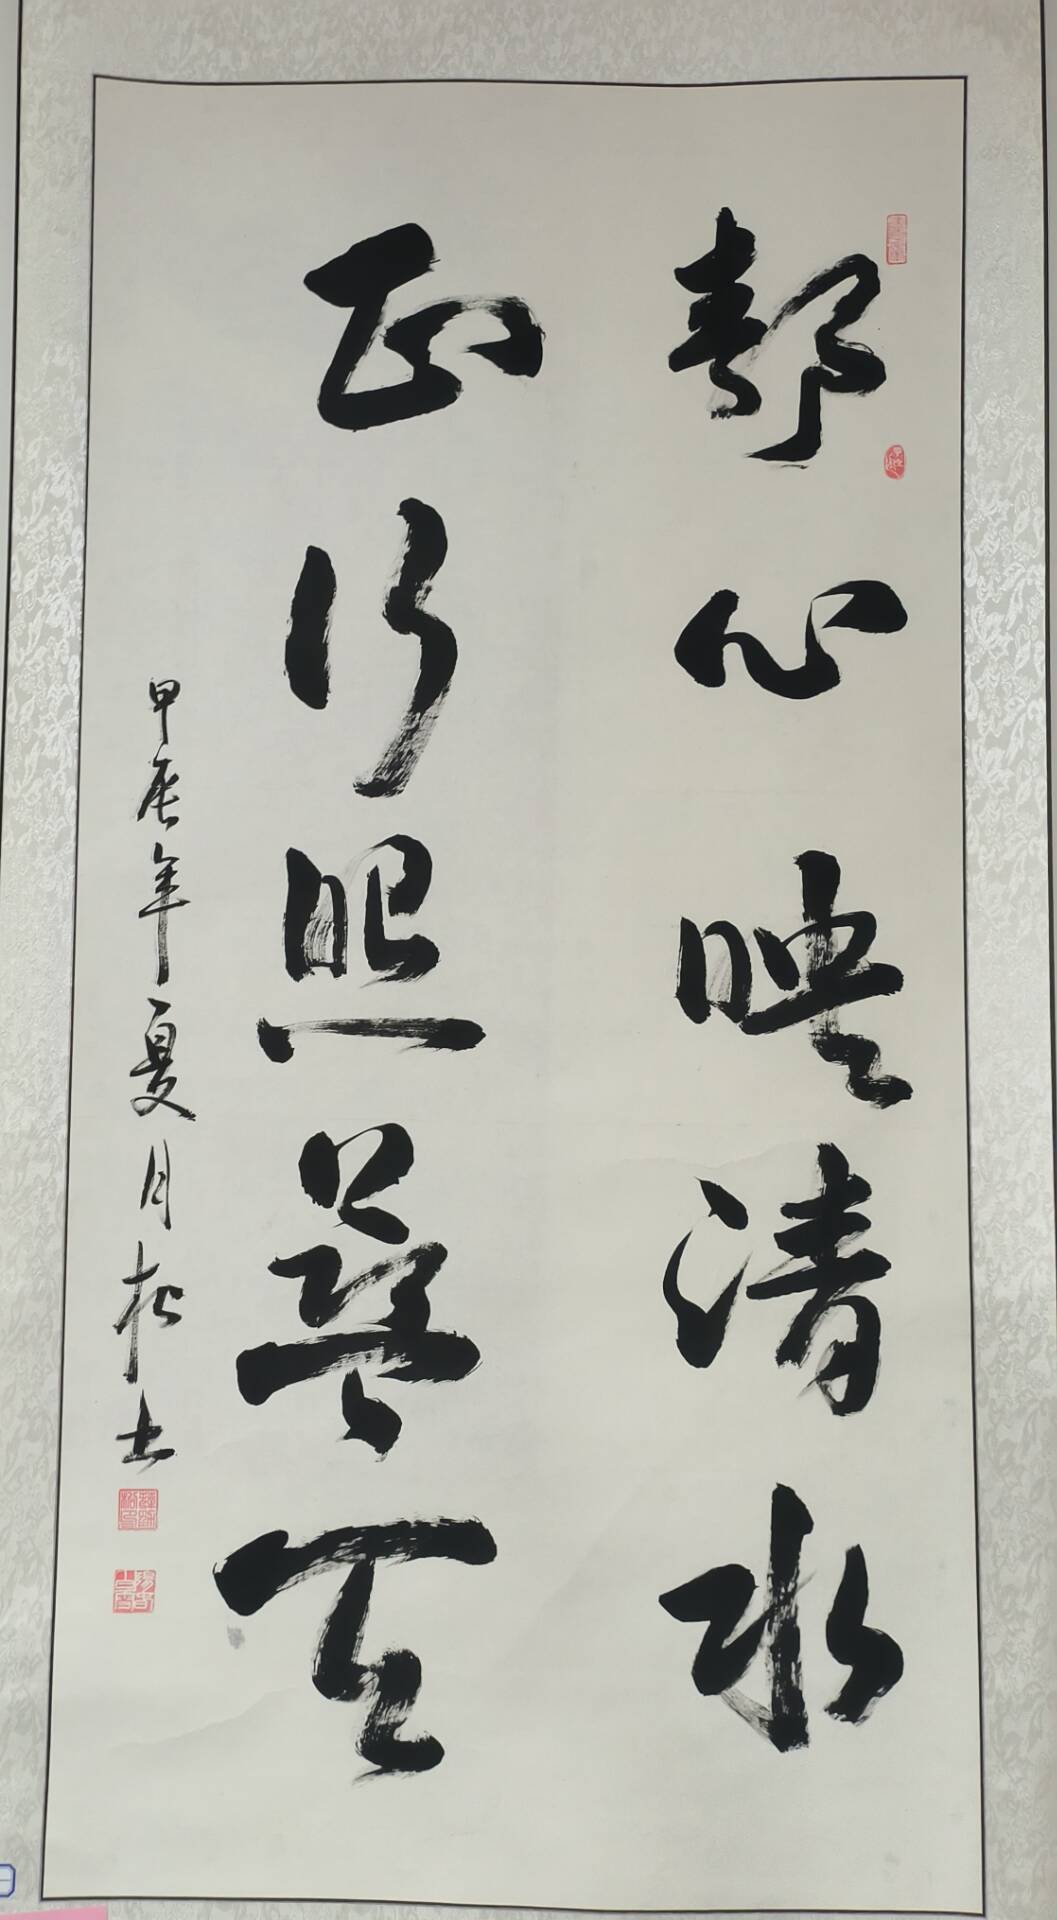 静心映清水
正行照天
甲辰年夏月松